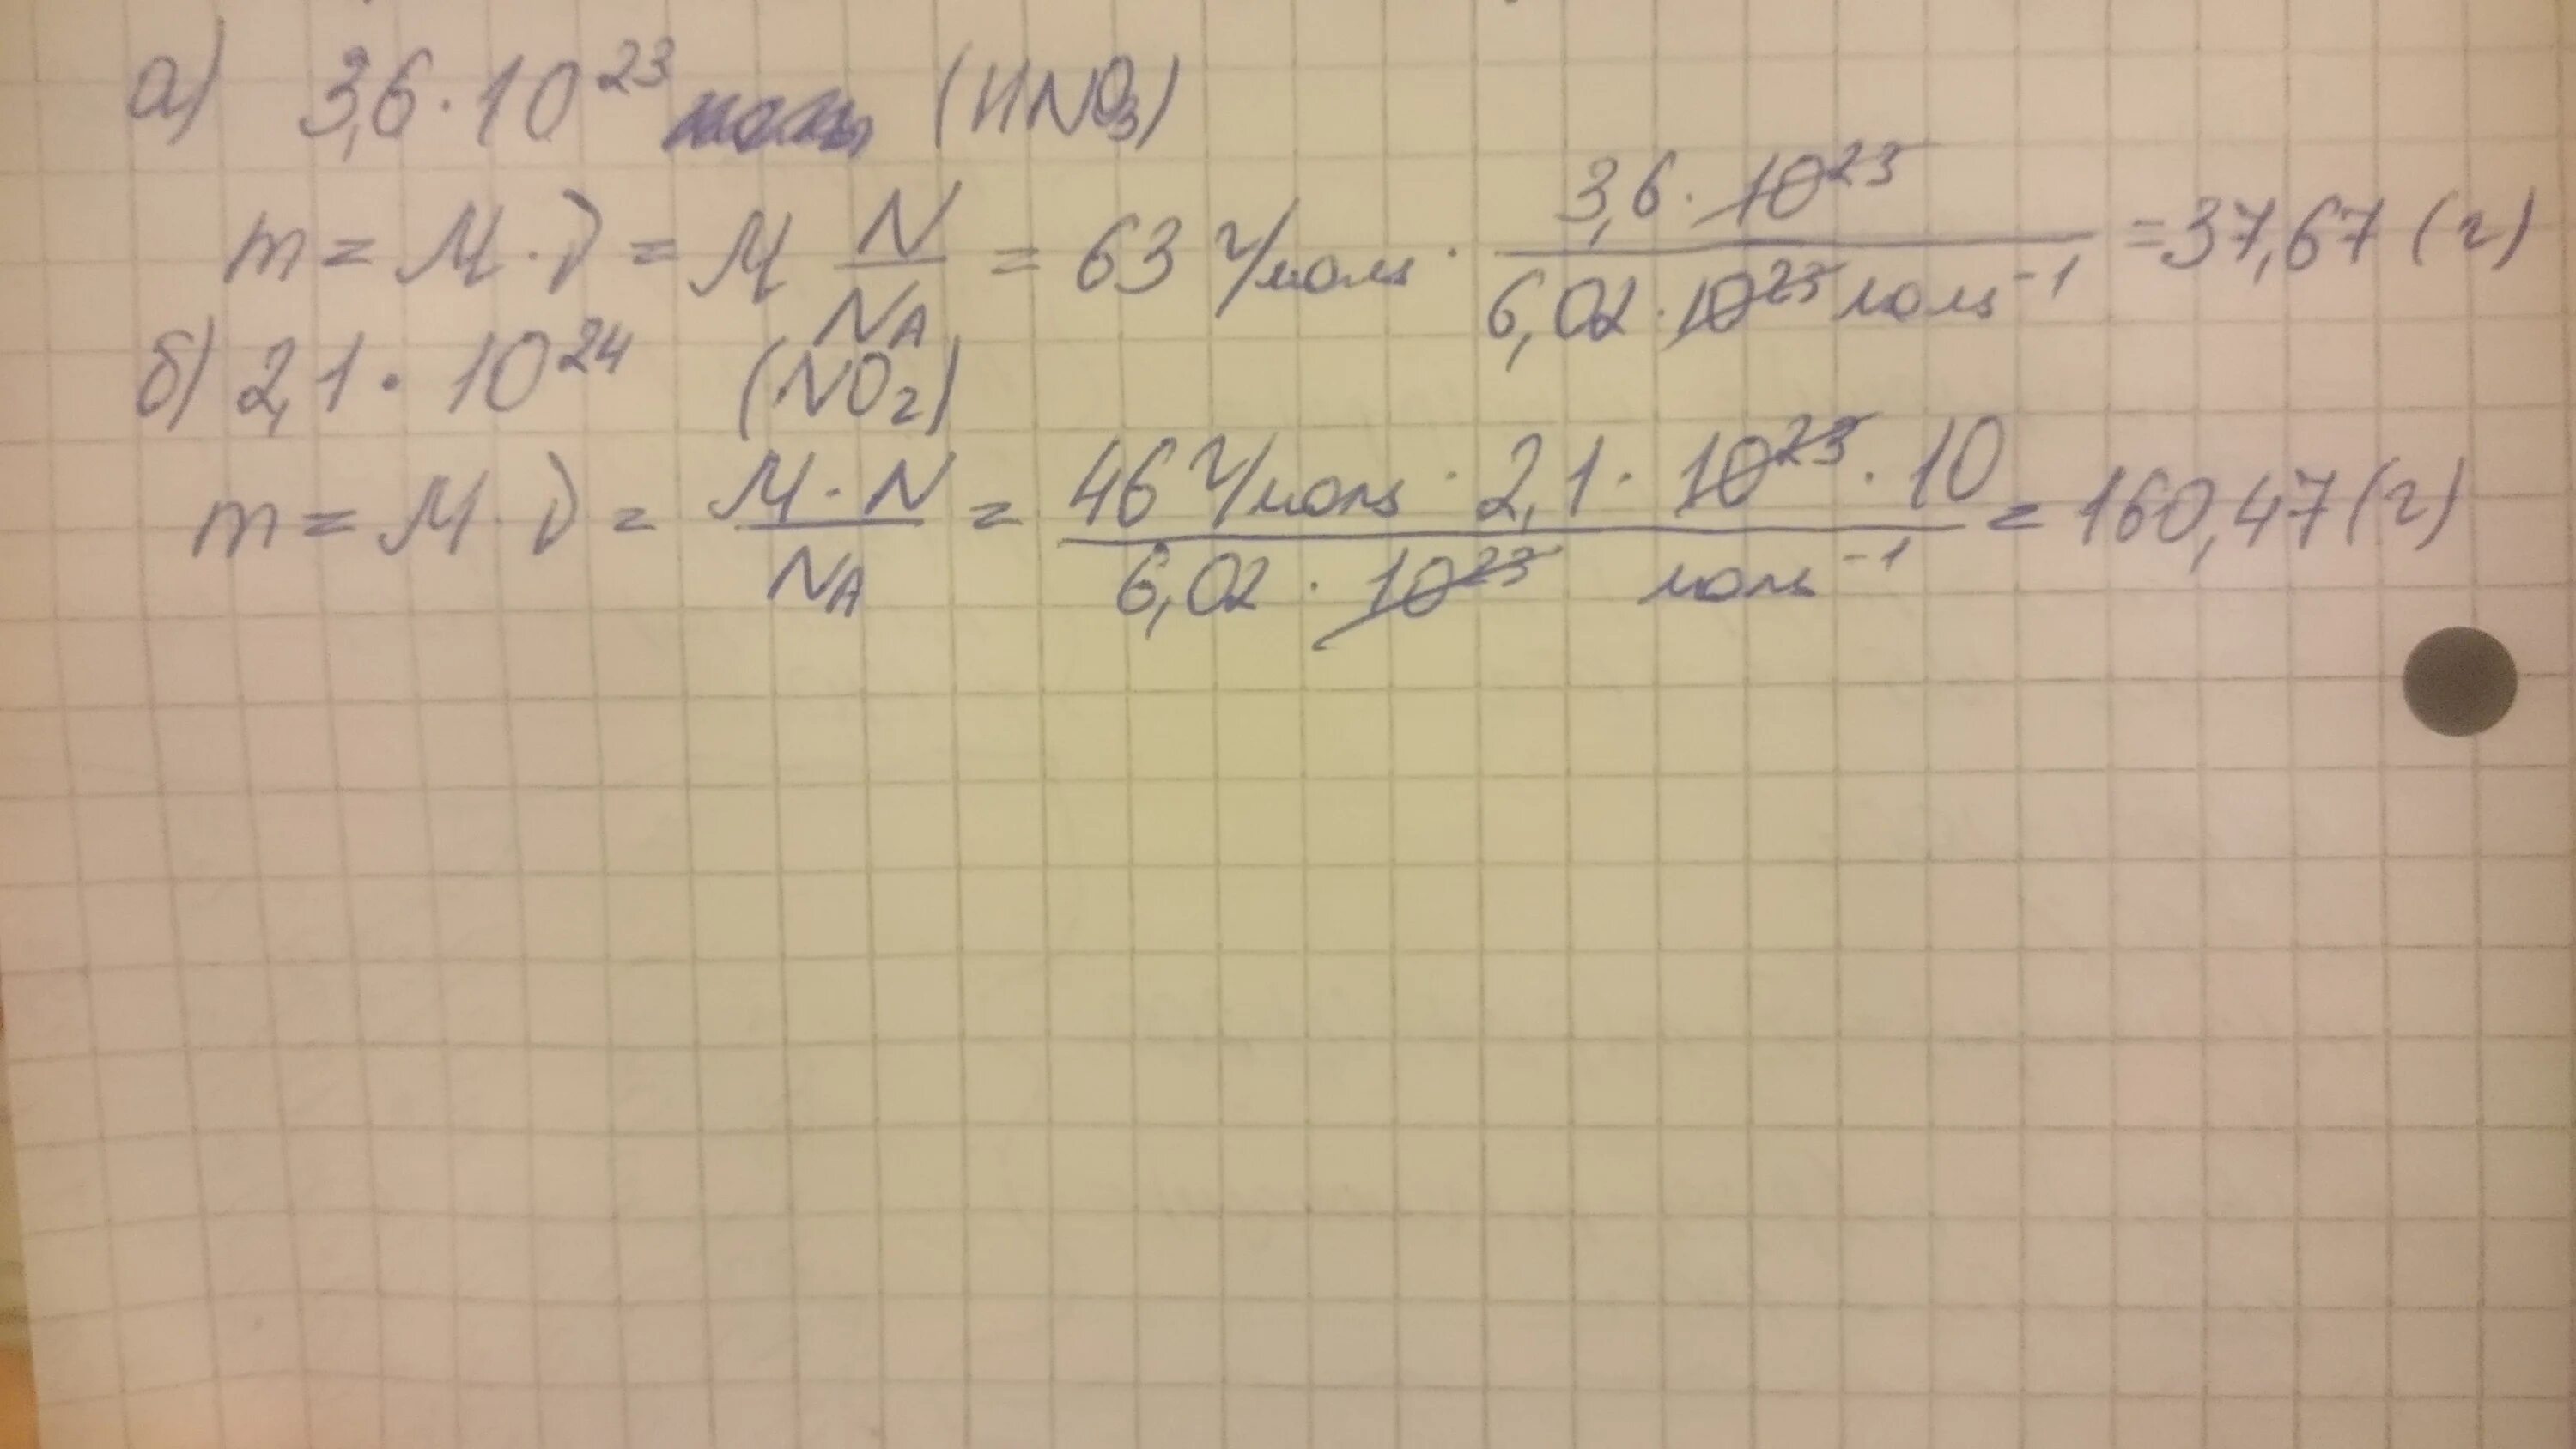 а) 3,6 · 10²³ (HNO₃)
m = M · ν = M N/Nᴀ = 63 г/моль · 3,6 · 10²³ / 6,02 · 10²³ моль⁻¹ = 37,67 (г)
б) 2,1 · 10²⁴ (NO₂)
m = M · ν = M · N / Nᴀ = 46 г/моль · 2,1 · 10²³ · 10 / 6,02 · 10²³ моль⁻¹ = 160,47 (г)